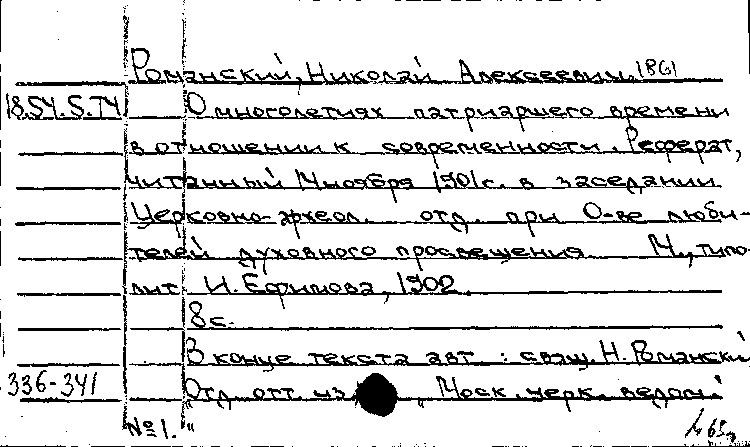 Романский, Николай Алексеевич. 1861
18.54.5.74 О многолетиях патриаршего времени
в отношении к современности. Реферат,
читанный 14 ноября 1901 г. в заседании
Церковно-археол. отд. при О-ве люби-
телей духовного просвещения. М., типо-
лит. И. Ефимова, 1902.
8 с.
В конце текста авт.: свящ. Н. Романский
336-341 Отд. отт. из "Моск. церк. ведом."
№ 1.